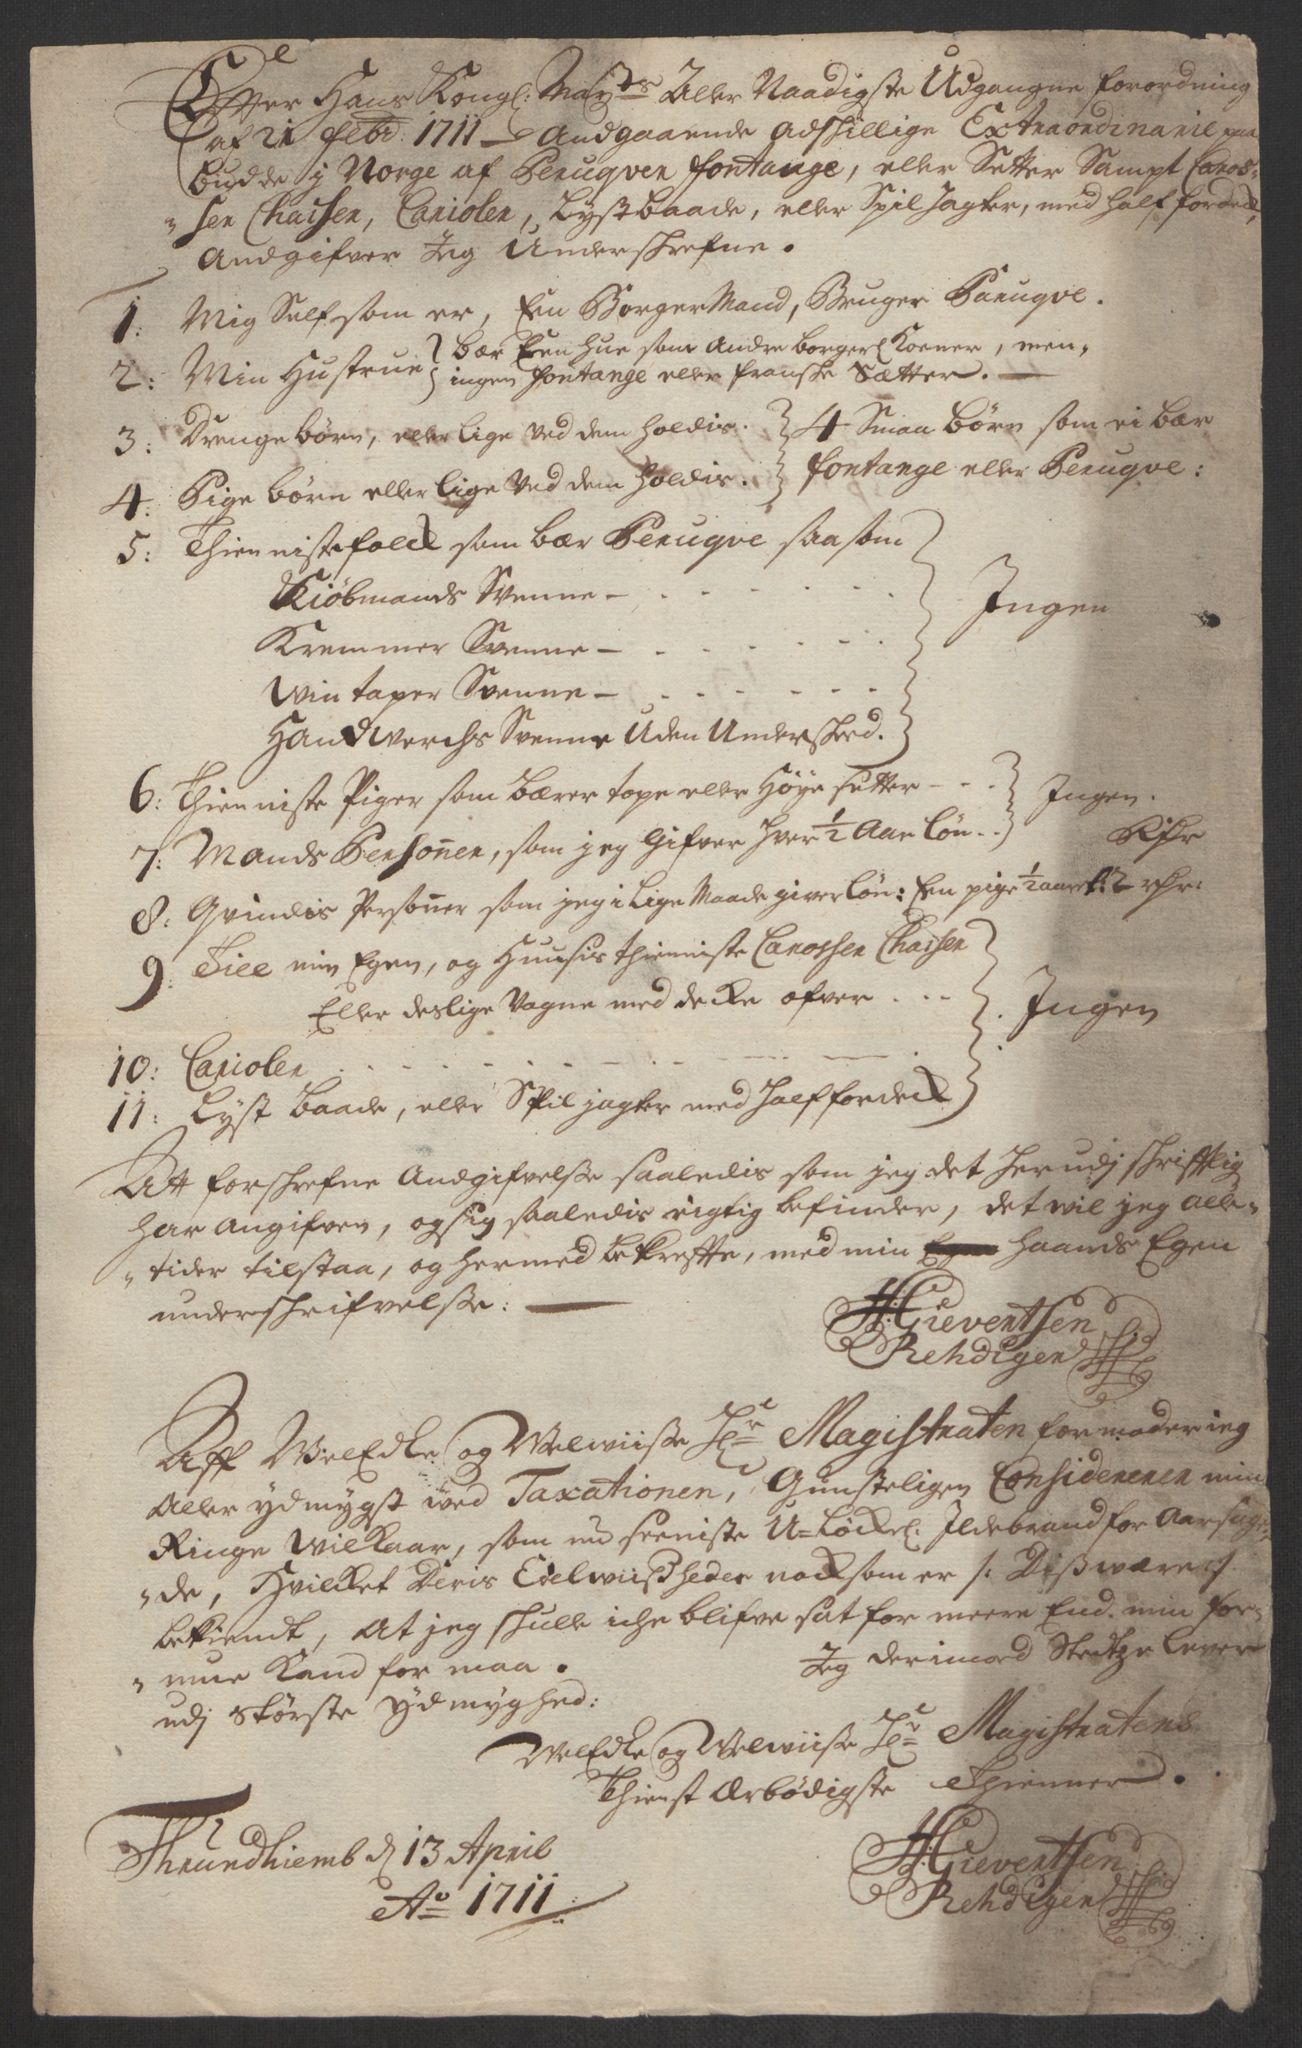 Effter Hans Kongl: May:ts Aller Naadigste Udgangne forordning
af 21 febr: 1711 Andgaaende adskillige Extraordinarie paa
budde j Norge af Peruqver fontange, eller Setter Sampt Caros-
"sen Chaisen, Carioler, Lystbaade, eller Spil Jagter, med half fordeck,
Andgifver Jeg Underskrefne.
1: Mig Self som er, Een Borger Mand, Bruger Paruqve.
2: Min Hustrue } bær Een hue som andre borgerl Koener, men,
ingen fontange eller franske Sætter. —
3: Drenge børn, eller lige ved dem holdis. } 4 Smaa børn som ei bær
4: Pige børn eller lige ved dem holdis. } fontange eller Peruqve:
5: Thiennistefolck som bær Peruqve saasom
Kiøbmands Svenne —
Kremmer Svenne — } Ingen
Wintaper Svenne —
Handwerchs Svenne Uden Underskeed.
6: Thienniste Piger som bærer tope eller Høye setter - - } Ingen.
7: Mands Persohner, som jeg Gifver hver ½ Aar løn. .
8: Qvindis Persohner som jeg i lige Maade giver løn: Een pige ½ aaret: 2 rdr:
9: Till min Egen, og Huusis thienniste Carossen Chaisen
Eller deslige Vogne med decke ofver . . . } Ingen
10: Cariolen
11: Lyst baade, eller Spil jagter med half fordeck
Att forskrefne Andgifvelse saaledis som jeg det herudj skrifftlig
har angifven, og sig saaledis rigtig befinder, det wil jeg alle-
"tider tilstaa, og hermed bekreffte, med min haands Egen
underschrifvelse: —
H: Gievertsen
Rehdigen
Aff WelEdle og Welwiisse Hr Magistraten formoder ieg
aller ydmygst ved Taxationen, Gunsteligen Considererer min
Ringe Wilkaar, som nu seeniste U-Løckel. Ildebrand for Aarsag-
"de, Hvilcket Deris Edelwiisheder nocksom er /: Disswære :/
bekiendt, at jeg skulle iche blifve sat for meere End. min for-
"mue Kand for maa. Jeg derimod Stedtze lever
udj Største Ydmyghed:
WelEdle og Welwiisse Hr Magistratens
Thienst Ærbødigste Thienner.
Thrundhiemb d 13 April
Ao 1711
H: Gievertsen
Rehdigen